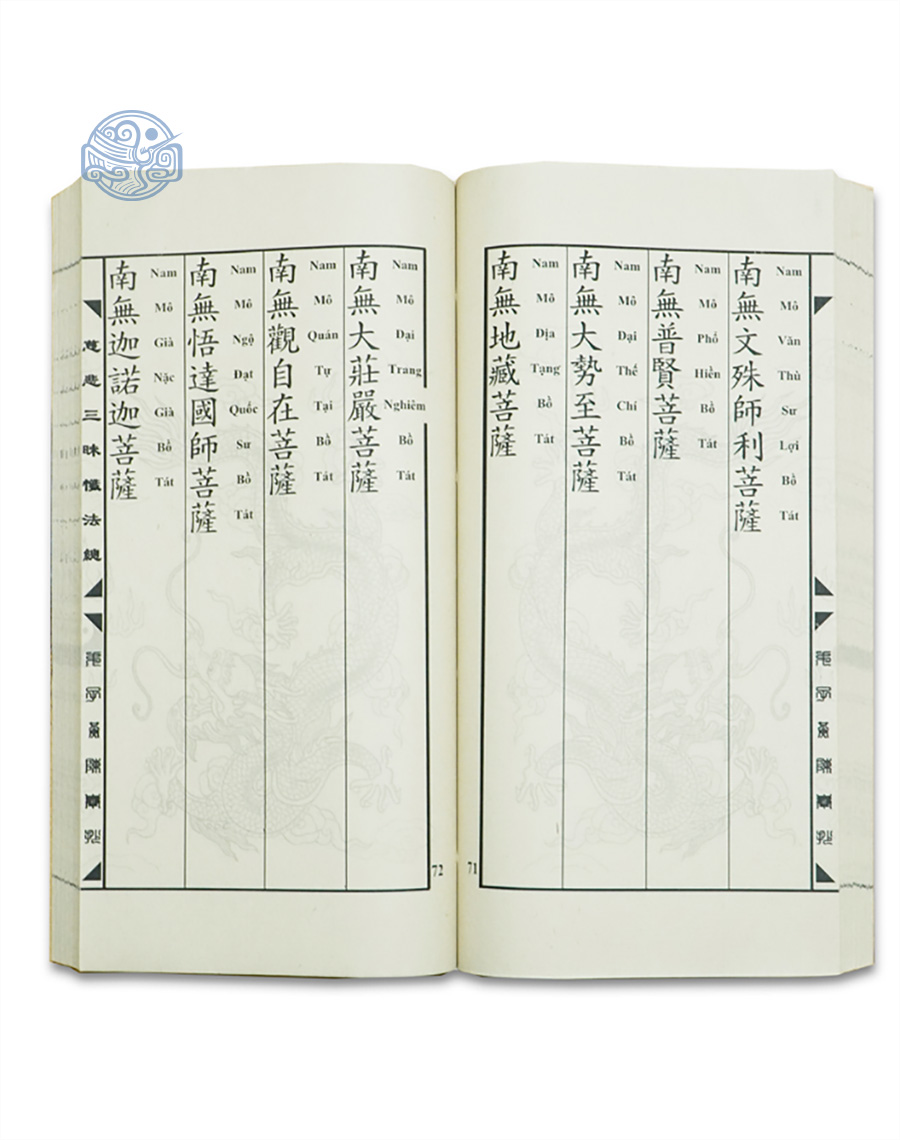 南無文殊師利菩薩
Nam Mô Văn Thù Sư Lợi Bồ Tát
南無普賢菩薩
Nam Mô Phổ Hiền Bồ Tát
南無大勢至菩薩
Nam Mô Đại Thế Chí Bồ Tát
南無地藏菩薩
Nam Mô Địa Tạng Bồ Tát
71
南無大莊嚴菩薩
Nam Mô Đại Trang Nghiêm Bồ Tát
南無觀自在菩薩
Nam Mô Quán Tự Tại Bồ Tát
南無悟達國師菩薩
Nam Mô Ngộ Đạt Quốc Sư Bồ Tát
南無迦諾迦菩薩
Nam Mô Già Nặc Già Bồ Tát
慈悲三昧懺法總
72